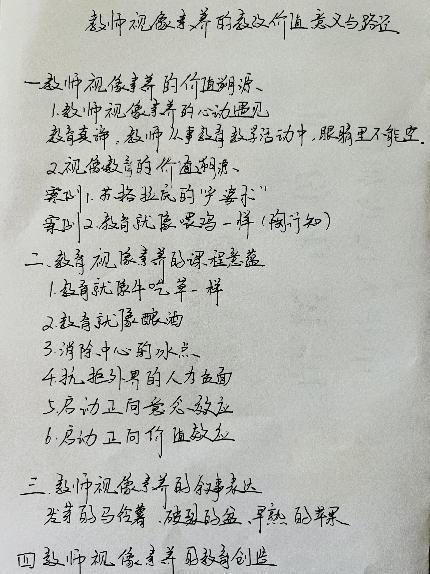 教师视像素养的教改价值意义与路径
一.教师视像素养的价值溯源、
1.教师视像素养的心动遇见
教育真谛，教师从事教育教学活动中，眼睛里不能空.
2.视像教育的价值溯源.
案例1.苏格拉底的"户要求"
案例2.教育就像喂鸡一样(陶行知)
二.教育视像素养的课程意蕴
1.教育就像牛吃草一样
2.教育就像酿酒
3.消除中心的冰点、
4.抗拒外界的人力
5.启动正向意念效应
6.启动正向价值效应
三.教师视像素养的叙事表达
发芽的马铃薯.破裂的盆.早熟的苹果
四 教师视像素养的教育创造